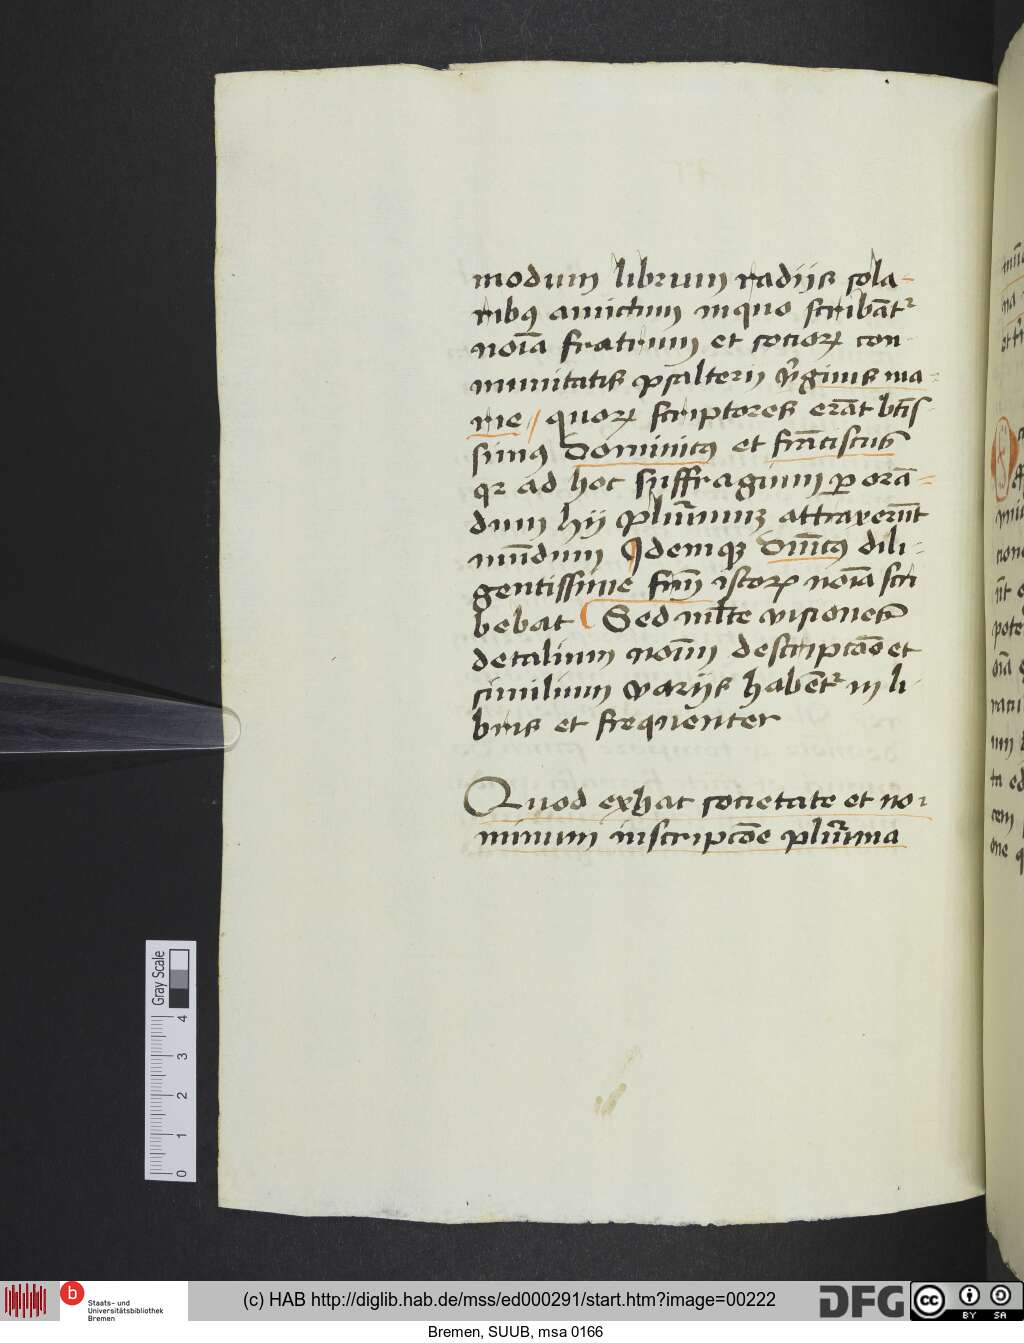 modum librum radijs sola-
ribꝯ amictum in quo scribāt᷑
noīa fratrum et socioꝝ con
munitatis psalterij v̄ginis ma-
rie / quoꝝ scriptores erāt btīs
simꝯ dominicꝯ et frāciscus
qr ad hoc suffragium ꝑ orā-
dum hij plurimum attraxerūt
mūdum Idemqꝫ dn̄icꝯ dili-
gentissime frm̄ istoꝝ noīa scri
bebat Sed ml̄te visiones
de talium noīm descripcōe et
similium varijs habent᷑ in li-
bris et frequenter
Quod exhac societate et no-
minum inscripcōe plurima
Gray Scale
4
3
2
1
0
b
Staats- und
Universitätsbibliothek
Bremen
(c) HAB http://diglib.hab.de/mss/ed000291/start.htm?image=00222
DFG
cc
BY
SA
Bremen, SUUB, msa 0166